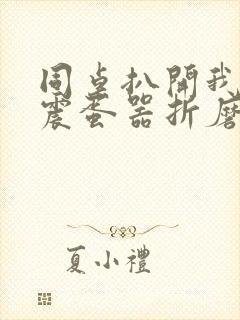 同桌扒開我
震蛋器折磨
夏小禮